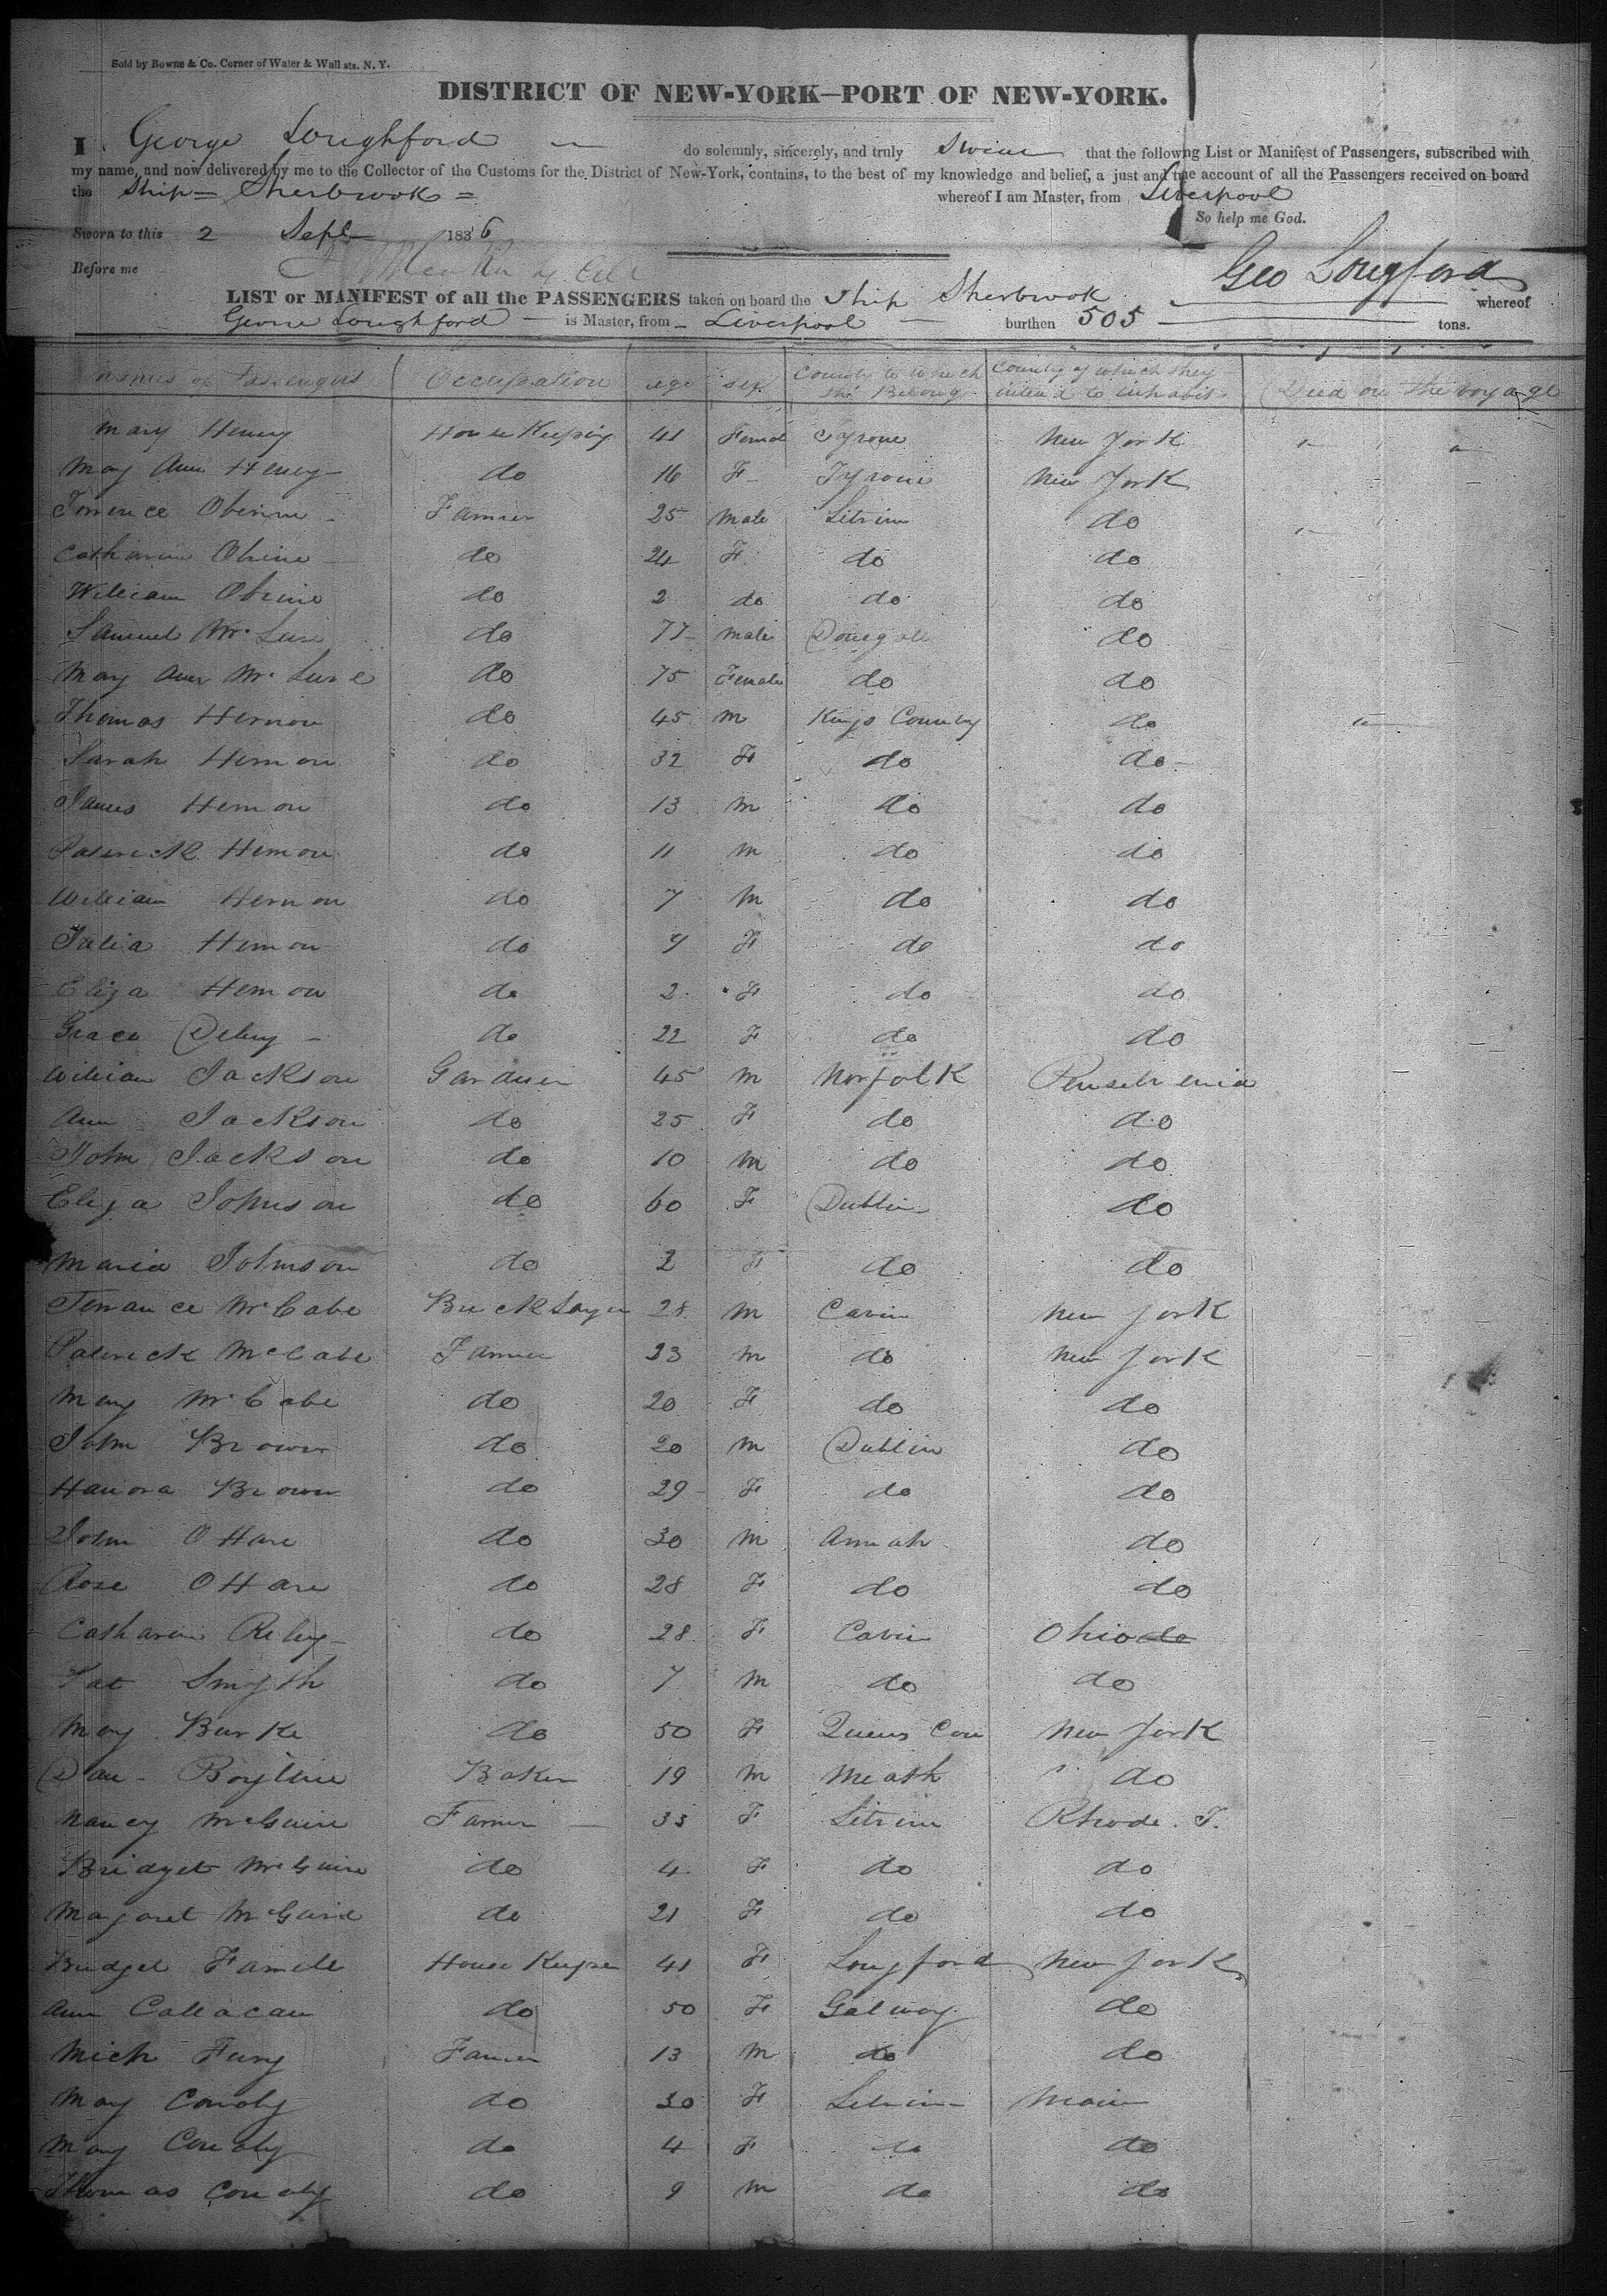 Sold by Bowne & Co. Corner of Water & Wall sts. N. Y.
DISTRICT OF NEW-YORK—PORT OF NEW-YORK.
I George Loughford do solemnly, sincerely, and truly Swear that the followng List or Manifest of Passengers, subscribed with
my name, and now delivered by me to the Collector of the Customs for the District of New-York, contains, to the best of my knowledge and belief, a just and true account of all the Passengers received on board
the Ship = Sherbrook = whereof I am Master, from Liverpool
So help me God.
Sworn to this 2 Sept 1836
Before me
Geo Longford
LIST or MANIFEST of all the PASSENGERS taken on board the Ship Sherbrook whereof
George Loughford is Master, from Liverpool burthen 505 tons.
names of Passengers Occupation age sex County to which the Belong Country of which they intend to inhabit Died on the voyage
Mary Henry House Keeping 41 Femal Tyrone New York
Mary Ann Henry do 16 F Tyrone New York
Torrence Obirine Farmer 25 Male Litrim do
Catharine Obrine do 24 F do do
William Obrine do 2 do do do
Samuel Mc Lure do 77 Male Donegall do
Mary Ann Mc Lure do 75 Female do do
Thomas Hernon do 45 m Kings County do
Sarah Hernon do 32 F do do
James Hernon do 13 m do do
Paterick Hernon do 11 m do do
William Hernon do 7 m do do
Julia Hernon do 4 F do do
Eliza Hernon do 2 F do do
Grace Deluy do 22 F do do
William Jackson Garduer 45 m Norfolk Penselvenia
Ann Jackson do 25 F do do
John Jackson do 10 m do do
Eliza Johnson do 60 F Dublin do
Maria Johnson do 2 F do do
Terrance McCabe Brick Layer 28 m Cavin New York
Paterick McCabe Farmer 23 m do New York
Mary McCabe do 20 F do do
John Brown do 20 m Dublin do
Hanora Brown do 29 F do do
John O Hare do 30 m Armah do
Rose O Hare do 28 F do do
Catharine Reley do 28 F Cavin Ohio do
Pat Smyth do 7 m do do
Mary Burke do 50 F Queens Cou New York
Dan Boyline Baker 19 m Meath do
Nancy McGuire Farmer 33 F Litrim Rhode. I.
Bridget McGuire do 4 F do do
Margaret McGuire do 21 F do do
Bridget Farrell House Keeper 41 F Longford New York
Ann Callacan do 50 F Galway do
Mich Fury Farmer 13 m do do
Mary Conoly do 30 F Litrim Main
Mary Conoly do 4 F do do
Thomas Conoly do 9 m do do